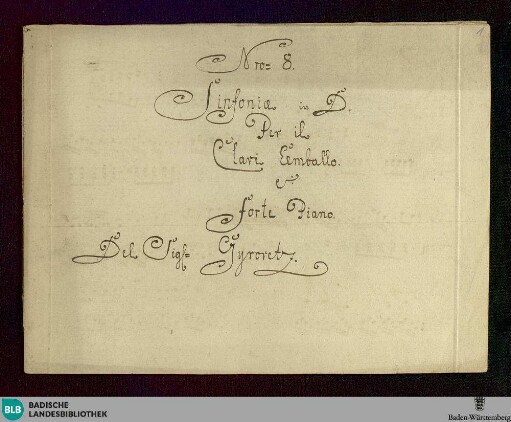 1
Nro= 8.
Sinfonia in D.
Per il
Clavi Cemballo.
Forte Piano.
Del Sigr= Gyrovetz.
BLB BADISCHE
LANDESBIBLIOTHEK
Baden-Württemberg